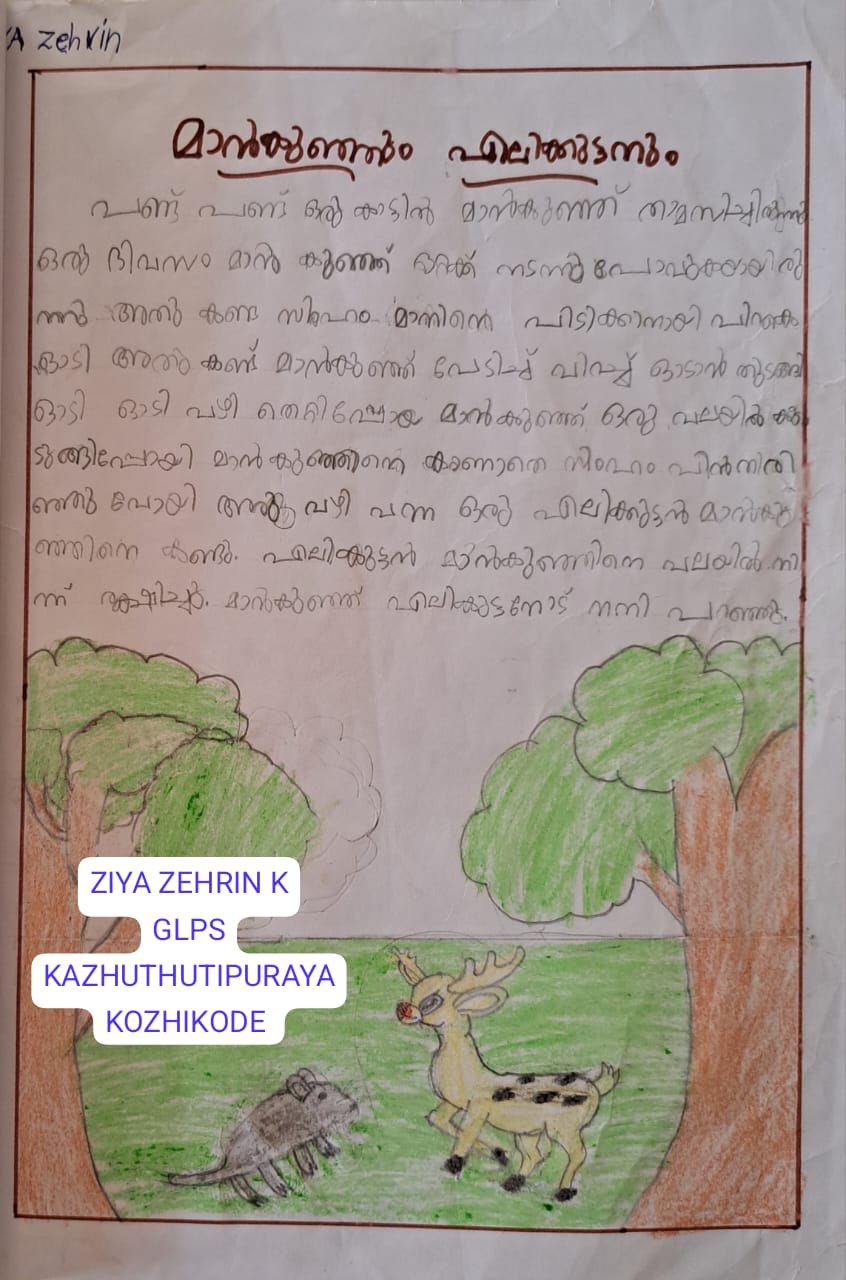 A zehrin
മാൻകുഞ്ഞും എലികുട്ടനും
പണ്ട് പണ്ട് ഒരു കാട്ടിൽ മാൻകുഞ്ഞ് താമസിച്ചിരുന്നു
ഒരു ദിവസം മാൻ കുഞ്ഞ് നടന്നു പോവുകയായിരു
ന്നു അതു കണ്ട സിംഹം മാനിനെ പിടിക്കാനായി പിറകെ
ഓടി അതു കണ്ട് മാൻകുഞ്ഞ് പേടിച്ച് വിറച്ച് ഓടാൻ തുടങ്ങി
ഓടി ഓടി വഴി തെറ്റിപ്പോയ മാൻകുഞ്ഞ് ഒരു വലയിൽ കു
ടുങ്ങിപ്പോയി മാൻ കുഞ്ഞിനെ കാണാതെ സിംഹം പിൻതിരി
ഞ്ഞു പോയി അതു വഴി വന്ന ഒരു എലിക്കുട്ടൻ മാൻകു
ഞ്ഞിനെ കണ്ടു. എലിക്കുട്ടൻ മാൻകുഞ്ഞിനെ വലയിൽ നി
ന്ന് രക്ഷിച്ചു. മാൻകുഞ്ഞ് എലികുട്ടനോട് നന്നി പറഞ്ഞു.
ZIYA ZEHRIN K
GLPS
KAZHUTHUTIPURAYA
KOZHIKODE